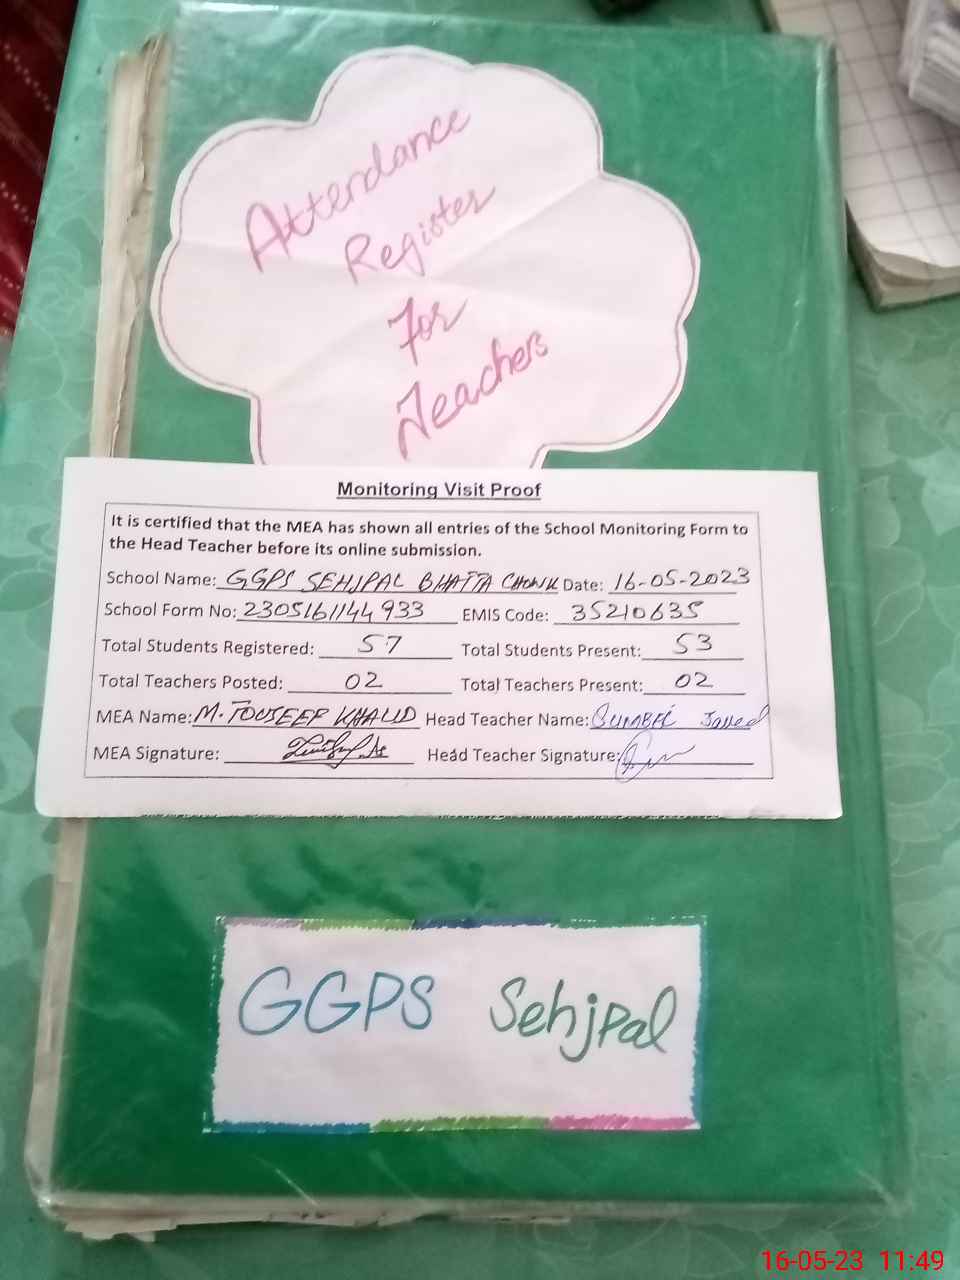 Attendance
Register
For
Teachers
Monitoring Visit Proof
It is certified that the MEA has shown all entries of the School Monitoring Form to
the Head Teacher before its online submission.
School Name: GGPS SEHJPAL BHATTA CHOWK Date: 16-05-2023
School Form No: 2305161144933 EMIS Code: 35210635
Total Students Registered: 57 Total Students Present: 53
Total Teachers Posted: 02 Total Teachers Present: 02
MEA Name: M. TOUSEEF KHALID Head Teacher Name: Javed
MEA Signature: Head Teacher Signature:
GGPS Sehjpal
16-05-23 11:49